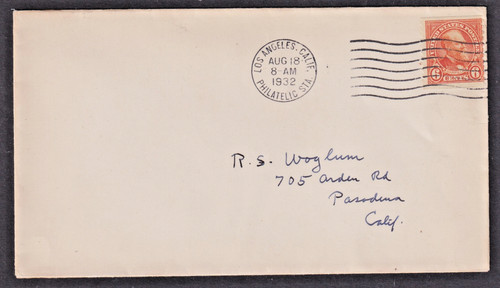 LOS ANGELES, CALIF.
AUG 18
8-AM
1932
PHILATELIC STA.
UNITED STATES POSTAGE
6 CENTS 6
R. S. Woglum
705 Arden Rd
Pasadena
Calif.